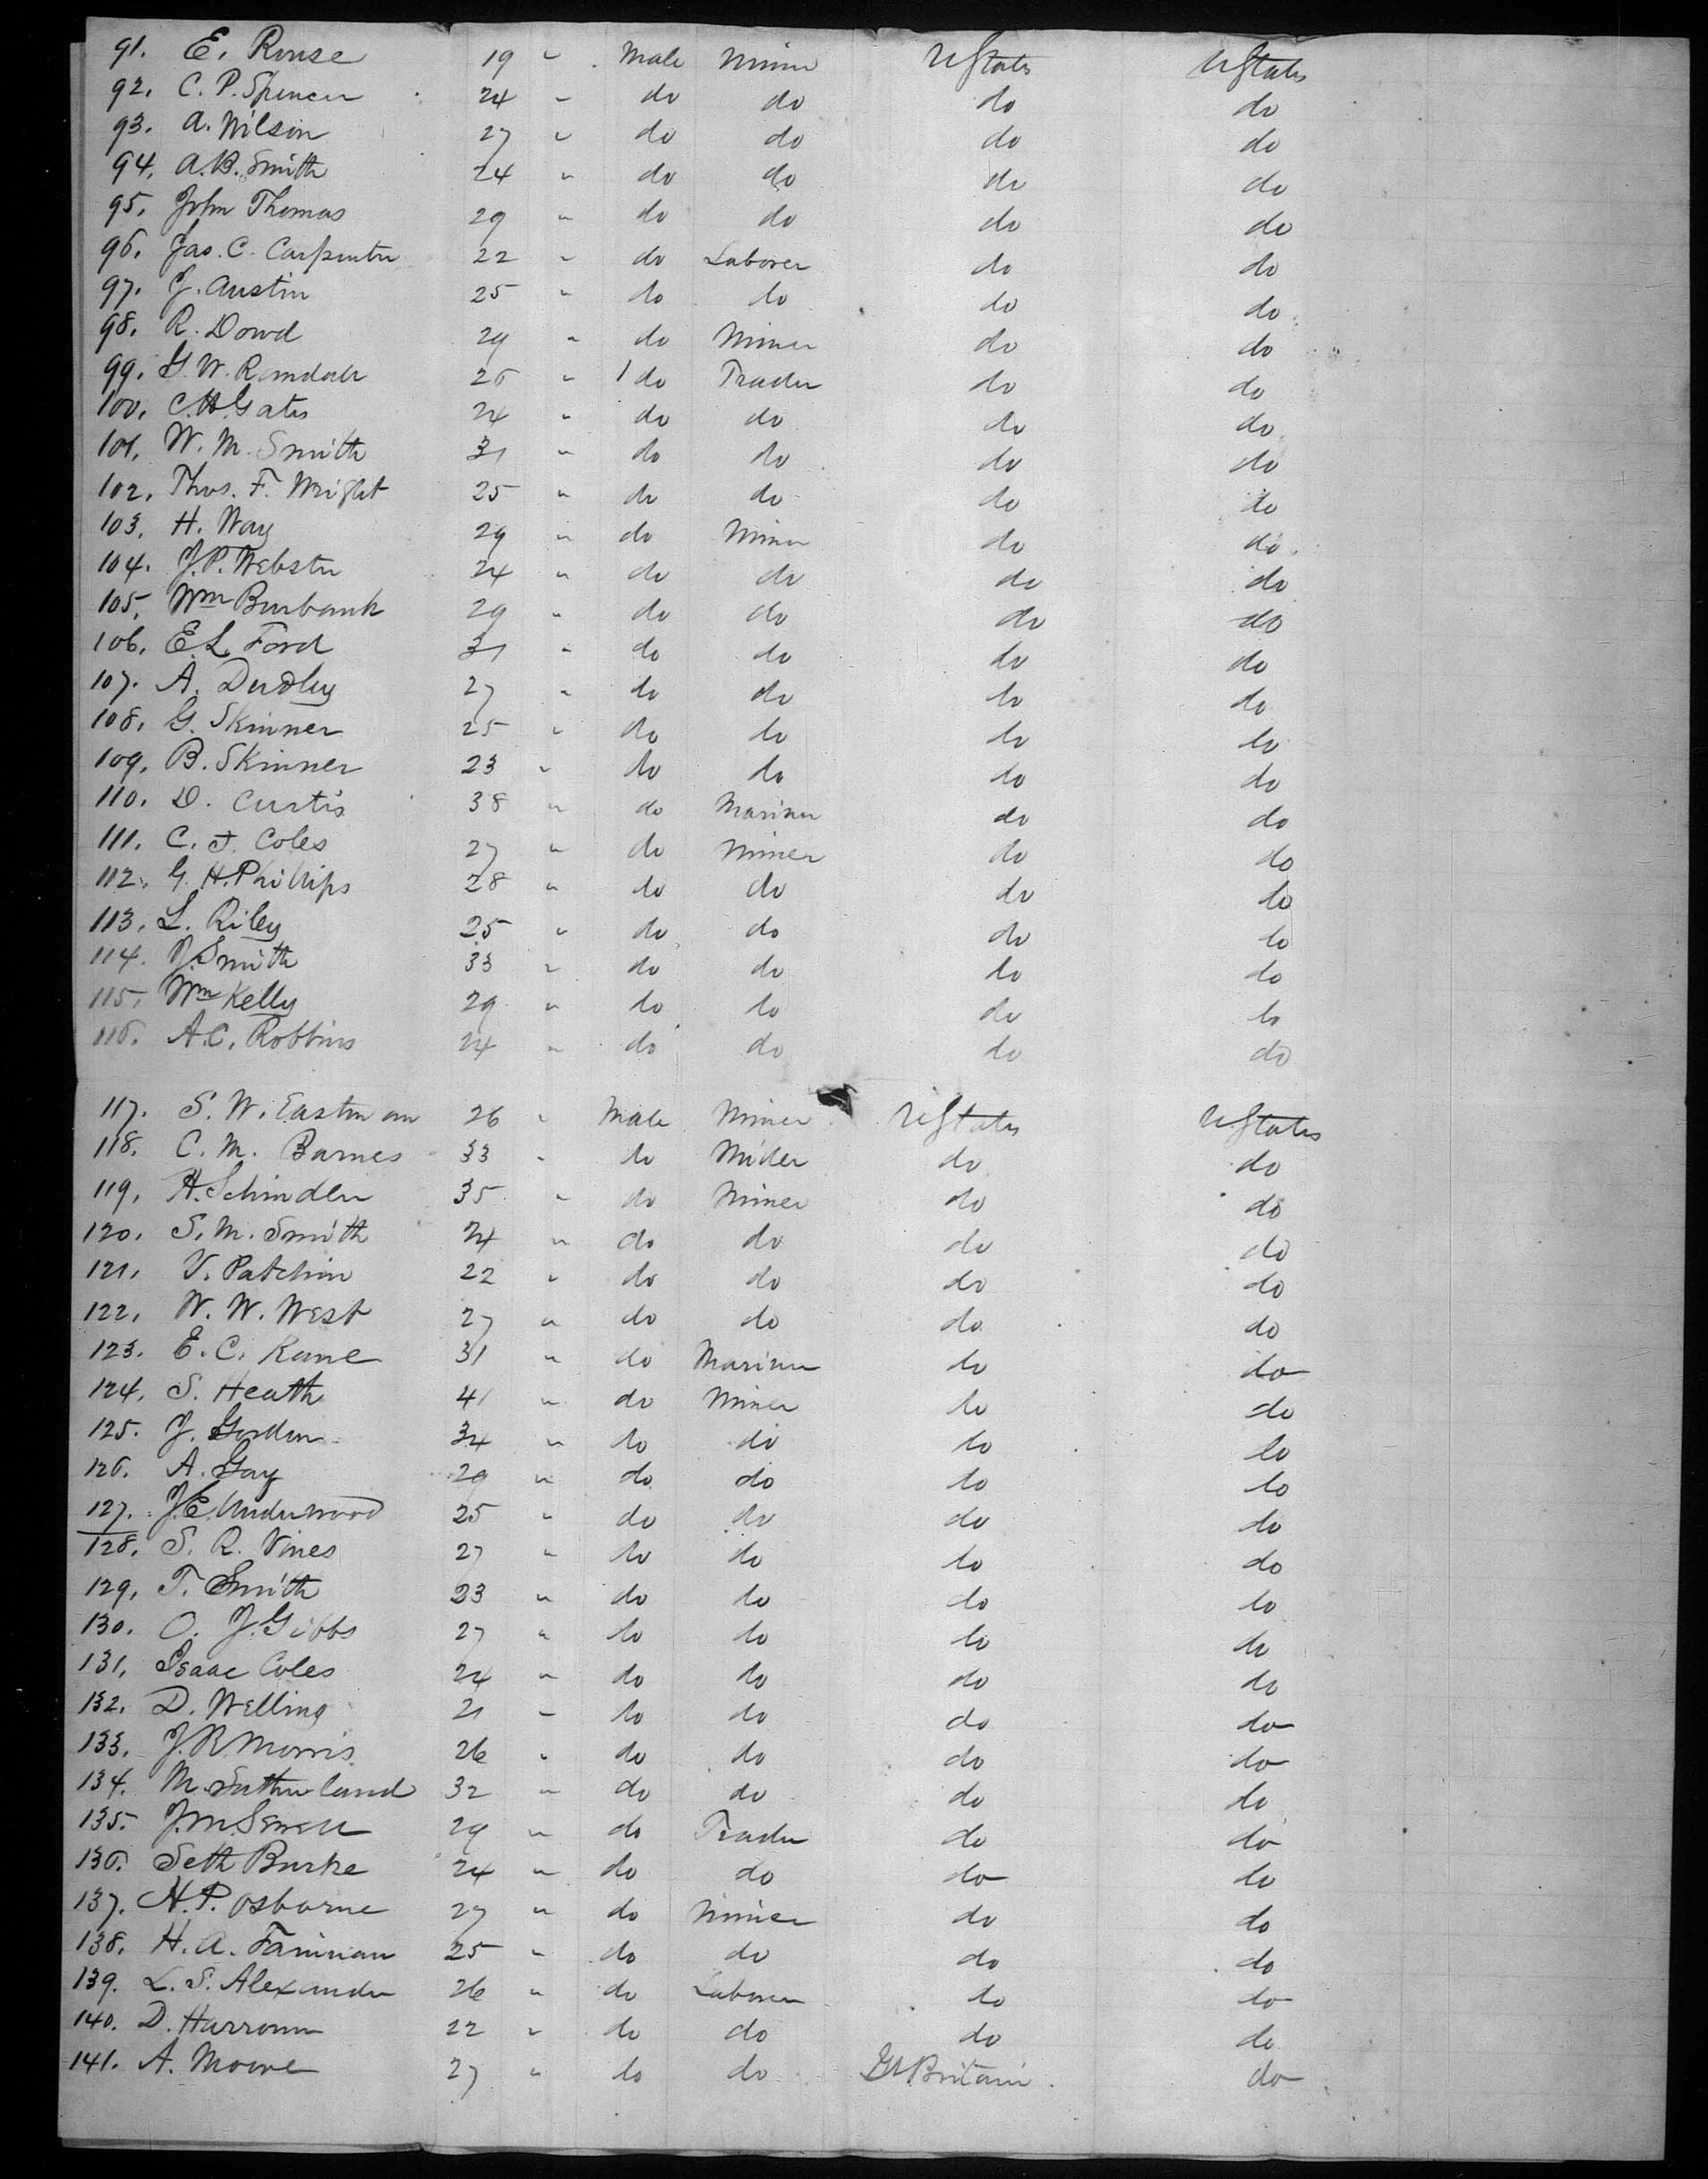 91. E. Rouse 19 " Male Miner UStates UStates
92. C. P. Spencer 24 " do do do do
93. A. Wilson 27 " do do do do
94. A. B. Smith 24 " do do do do
95. John Thomas 29 " do do do do
96. Jas. C. Carpenter 22 " do Laborer do do
97. J. Austin 25 " do do do do
98. R. Dowd 29 " do Miner do do
99. G. W. Randall 26 " do Trader do do
100. C. H. Gates 24 " do do do do
101. W. M. Smith 31 " do do do do
102. Thos. F. Wright 25 " do do do do
103. H. Way 29 " do Miner do do
104. J. P. Webster 24 " do do do do
105. Wm Burbank 29 " do do do do
106. E. L. Ford 31 " do do do do
107. A. Dudley 27 " do do do do
108. G. Skinner 25 " do do do do
109. B. Skinner 23 " do do do do
110. D. Curtis 38 " do Mariner do do
111. C. J. Coles 27 " do Miner do do
112. G. H. Phillips 28 " do do do do
113. L. Riley 25 " do do do do
114. J. Smith 33 " do do do do
115. Wm Kelly 29 " do do do do
116. A. C. Robbins 24 " do do do do
117. S. W. Eastman 26 " Male Miner UStates UStates
118. C. M. Barnes 33 " do Miller do do
119. H. Schindler 35 " do Miner do do
120. S. M. Smith 24 " do do do do
121. V. Patchin 22 " do do do do
122. W. W. West 27 " do do do do
123. E. C. Kane 31 " do Mariner do do
124. S. Heath 41 " do Miner do do
125. J. Gordon 34 " do do do do
126. A. Gay 29 " do do do do
127. J. E. Underwood 25 " do do do do
128. S. R. Vines 27 " do do do do
129. T. Smith 23 " do do do do
130. O. J. Gibbs 27 " do do do do
131. Isaac Coles 24 " do do do do
132. D. Welling 21 " do do do do
133. J. R. Morris 26 " do do do do
134. M. Sutherland 32 " do do do do
135. J. M. Sewell 29 " do Trader do do
136. Seth Burke 24 " do do do do
137. H. P. Osborne 27 " do Miner do do
138. H. A. 25 " do do do do
139. L. S. Alexander 26 " do Laborer do do
140. D. Harroun 22 " do do do do
141. A. Moore 27 " do do Gt Britain do